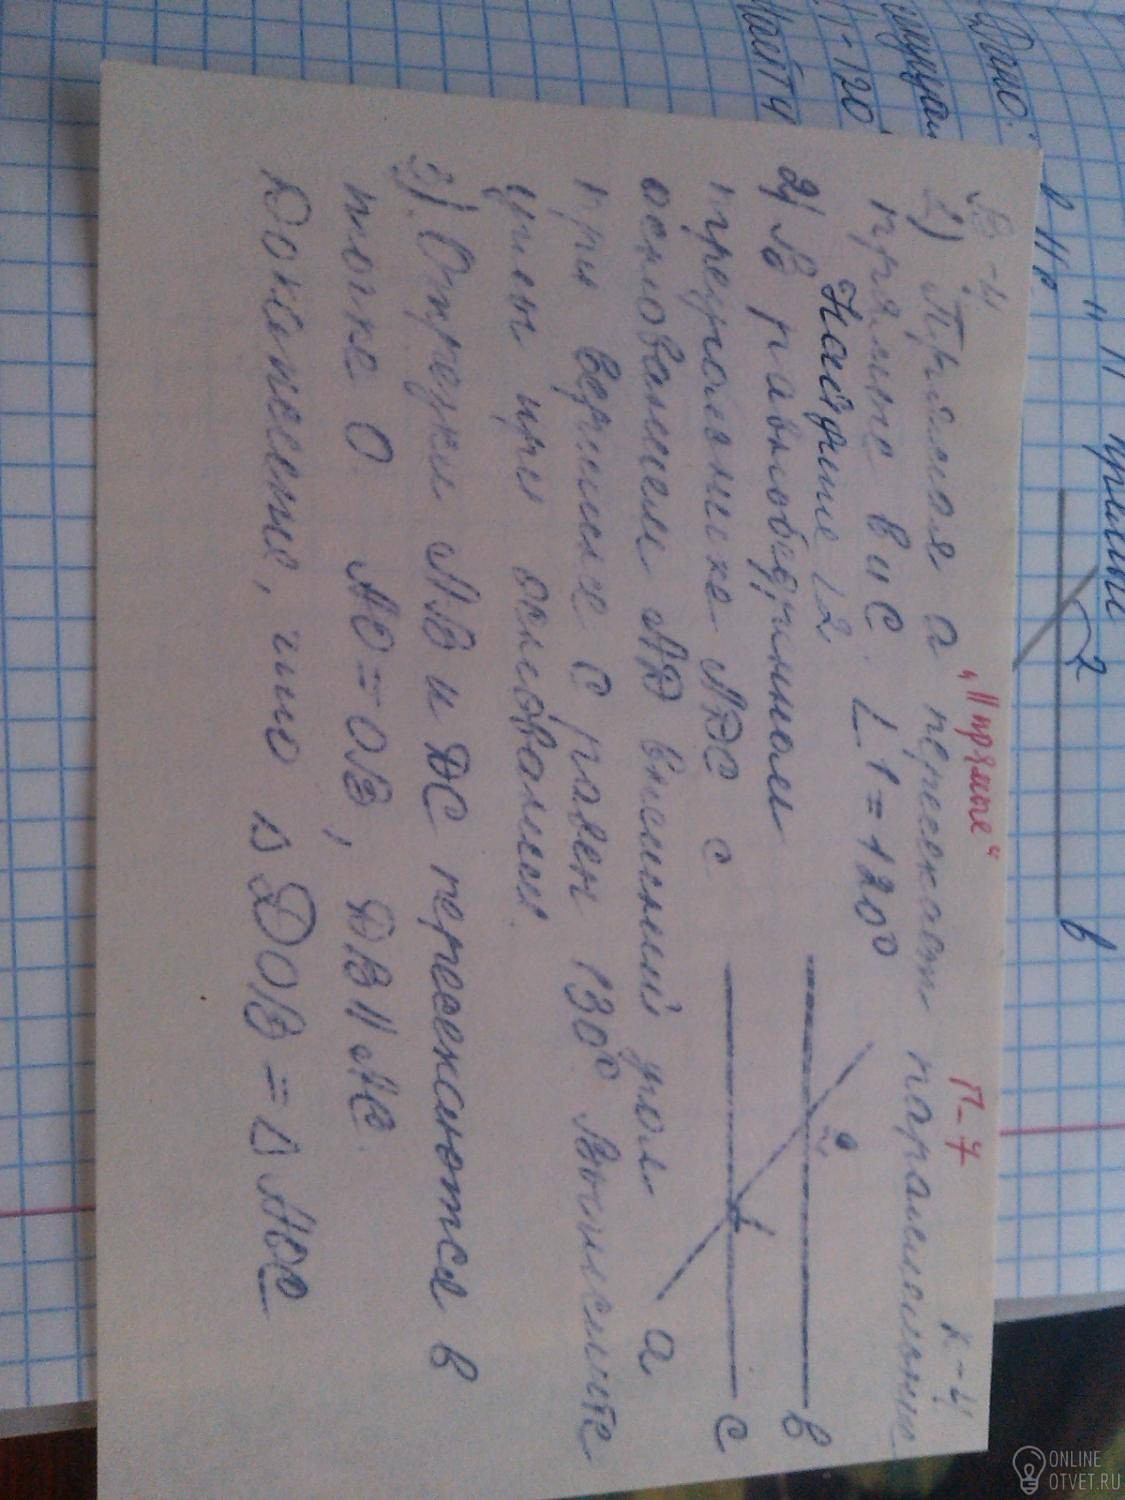 "|| прямые" П-7 К-4
В-4
1) Прямая а пересекает параллельные
прямые в и с. ∠1=120°
Найдите ∠2
2) В равнобедренном
треугольнике АДС с
основанием АД внешний угол
при вершине С равен 130° Вычислите
углы при основании.
3) Отрезки АВ и ДС пересекаются в
точке О. АО=ОВ, ДВ||АС.
Докажите, что Δ ДОВ = Δ АОС
в
с
а
2
1
Дано:
прямые
2
в
ONLINE
OTVET.RU